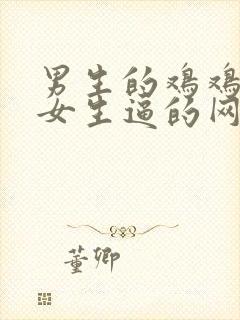 男生的鸡鸡
女生逼的网
董卿